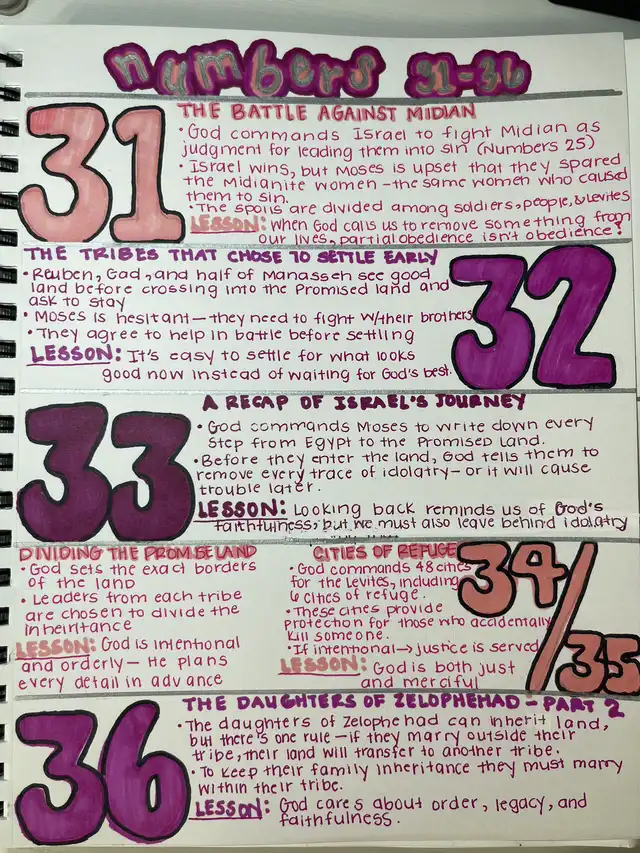 numbers 31-36
31
THE BATTLE AGAINST MIDIAN
• God commands Israel to fight Midian as
judgment for leading them into sin (Numbers 25)
• Israel wins, but Moses is upset that they spared
the Midianite women - the same women who caused
them to sin.
• The spoils are divided among soldiers, people, & Levites
LESSON: When God calls us to remove something from
our lives, partial obedience isn't obedience!
THE TRIBES THAT CHOSE TO SETTLE EARLY
32
• Reuben, Gad, and half of Manasseh see good
land before crossing into the Promised land and
ask to stay
• Moses is hesitant — they need to fight w/their brothers
• They agree to help in battle before settling
LESSON: It's easy to settle for what looks
good now instead of waiting for God's best.
33
A RECAP OF ISRAEL'S JOURNEY
• God commands Moses to write down every
Step from Egypt to the Promised Land.
• Before they enter the land, God tells them to
remove every trace of idolatry - or it will cause
trouble later.
LESSON: Looking back reminds us of God's
faithfulness, but we must also leave behind idolatry
DIVIDING THE PROMISELAND
• God sets the exact borders
of the land
• Leaders from each tribe
are chosen to divide the
inheritance
LESSON: God is intentional
and orderly — He plans
every detail in advance
CITIES OF REFUGE
34/35
• God commands 48 cities
for the Levites, including
6 cities of refuge.
• These cities provide
protection for those who accidentally
kill someone.
• If intentional → justice is served
LESSON: God is both just
and merciful
36
THE DAUGHTERS OF ZELOPHEHAD - PART 2
• The daughters of Zelophehad can inherit land,
but there's one rule — if they marry outside their
tribe, their land will transfer to another tribe.
• To keep their family inheritance they must marry
within their tribe.
LESSON: God cares about order, legacy, and
faithfulness.